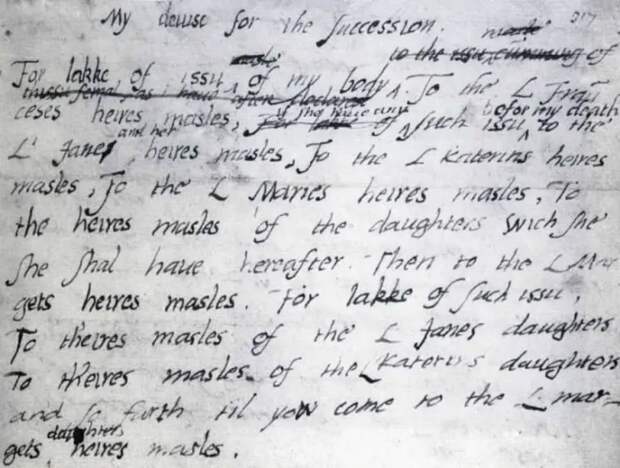 My deuise for the Succession.
317
For lakke of issu masle of my body to the issu cumming of
of my body, To the L Fran
ceses heires masles, For lakke of if she haue any such issu befor my death to the
L' Janes and her heires masles, To the L Katerins heires
masles, To the L Maries heires masles, To
the heires masles of the daughters wich she
she shal haue hereafter. Then to the L Mar
gets heires masles. For lakke of such issu,
To theires masles of the L Janes daughters
To theires masles of the L Katerins daughters
and so furth til yow come to the L mar
gets daughters heires masles.